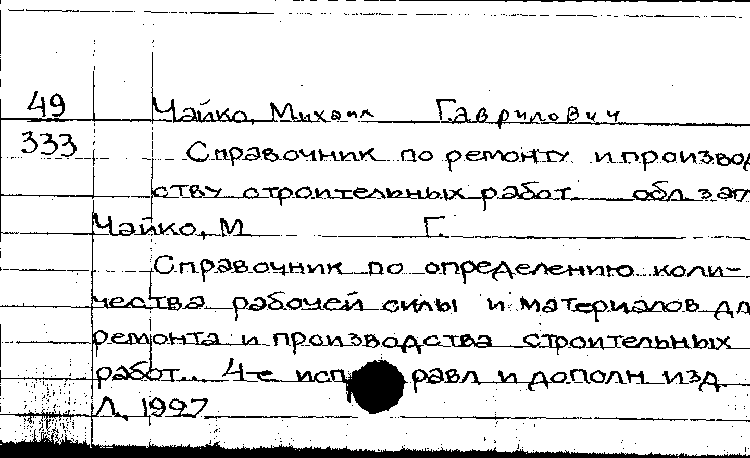 49
333
Чайко, Михаил Гаврилович
Справочник по ремонту и произвол
ству строительных работ обл заг
Чайко, М Г.
Справочник по определению коли-
чества рабочей силы и материалов дл
ремонта и производства строительных
работ... 4-е испр равл и дополн изд
Л. 1927